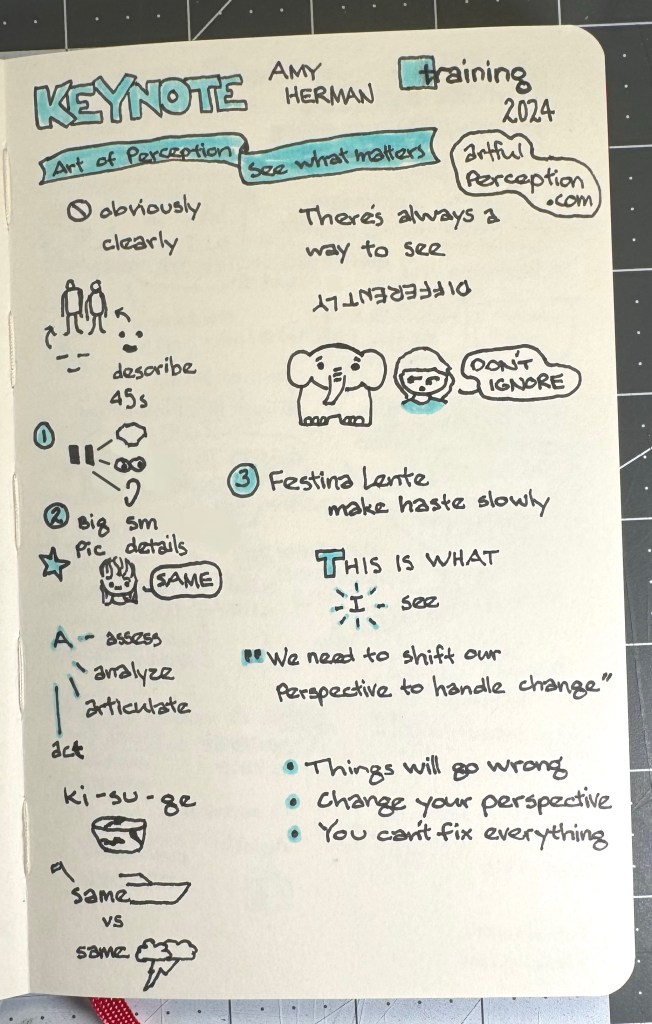 KEYNOTE
AMY
HERMAN
training
2024
Art of Perception
see what matters
artful
Perception
.com
obviously
clearly
describe
45s
1
2
Big sm
Pic details
SAME
A - assess
analyze
articulate
act
ki-su-ge
same
vs
same
There's always a
way to see
DIFFERENTLY
DON'T
IGNORE
3 Festina Lente
make haste slowly
THIS IS WHAT
I see
"We need to shift our
perspective to handle change"
• Things will go wrong
• Change your perspective
• You can't fix everything